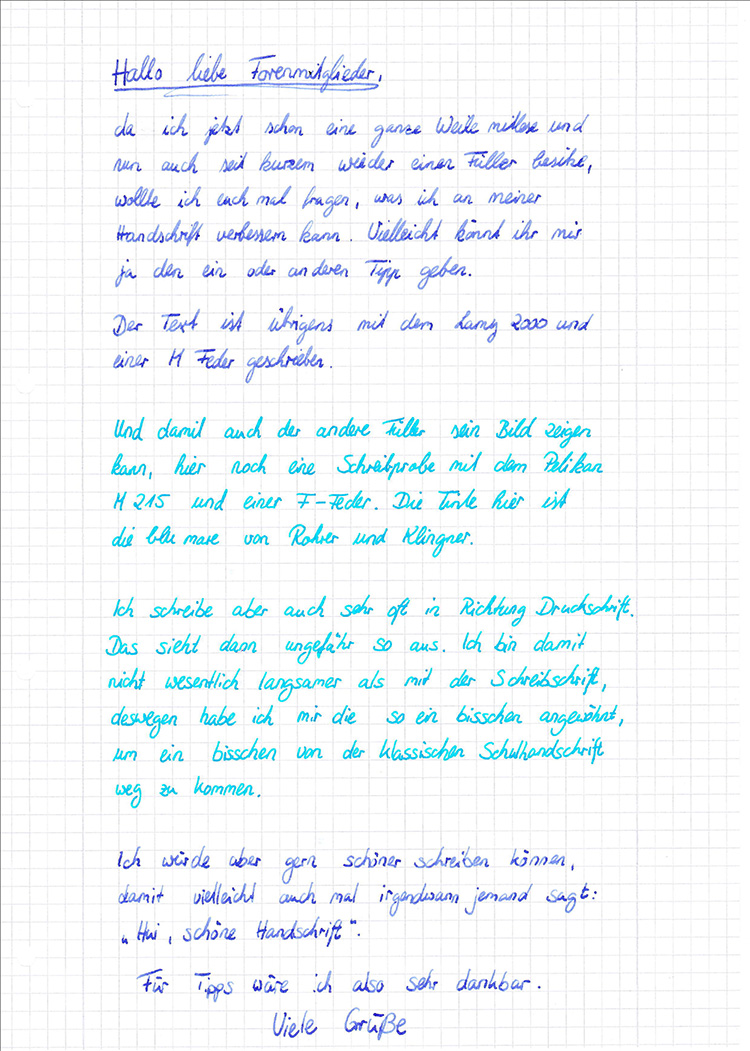 Hallo liebe Forenmitglieder,
da ich jetzt schon eine ganze Weile mitlese und
nun auch seit kurzem wieder einen Füller besitze,
wollte ich euch mal fragen, was ich an meiner
Handschrift verbessern kann. Vielleicht könnt ihr mir
ja den ein oder anderen Tipp geben.
Der Text ist übrigens mit dem Lamy 2000 und
einer M Feder geschrieben.
Und damit auch der andere Füller sein Bild zeigen
kann, hier noch eine Schreibprobe mit dem Pelikan
M 215 und einer F-Feder. Die Tinte hier ist
die blu mare von Rohrer und Klingner.
Ich schreibe aber auch sehr oft in Richtung Druckschrift.
Das sieht dann ungefähr so aus. Ich bin damit
nicht wesentlich langsamer als mit der Schreibschrift,
deswegen habe ich mir die so ein bisschen angewöhnt,
um ein bisschen von der klassischen Schulhandschrift
weg zu kommen.
Ich würde aber gern schöner schreiben können,
damit vielleicht auch mal irgendwann jemand sagt:
„Hui, schöne Handschrift".
Für Tipps wäre ich also sehr dankbar.
Viele Grüße